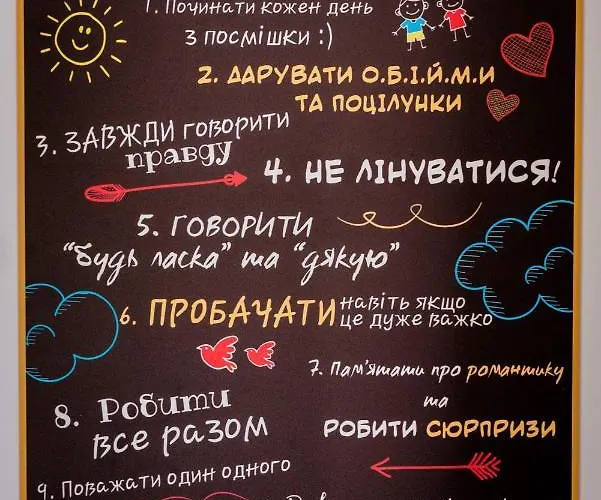 1. Починати кожен день
з посмішки :)
2. ДАРУВАТИ О.Б.І.Й.М.И
ТА ПОЦІЛУНКИ
3. ЗАВЖДИ говорити
правду
4. НЕ ЛІНУВАТИСЯ!
5. ГОВОРИТИ
"будь ласка" та "дякую"
6. ПРОБАЧАТИ навіть якщо
це дуже важко
7. Пам'ятати про романтику
та
РОБИТИ СЮРПРИЗИ
8. Робити
все разом
9. Поважати один одного